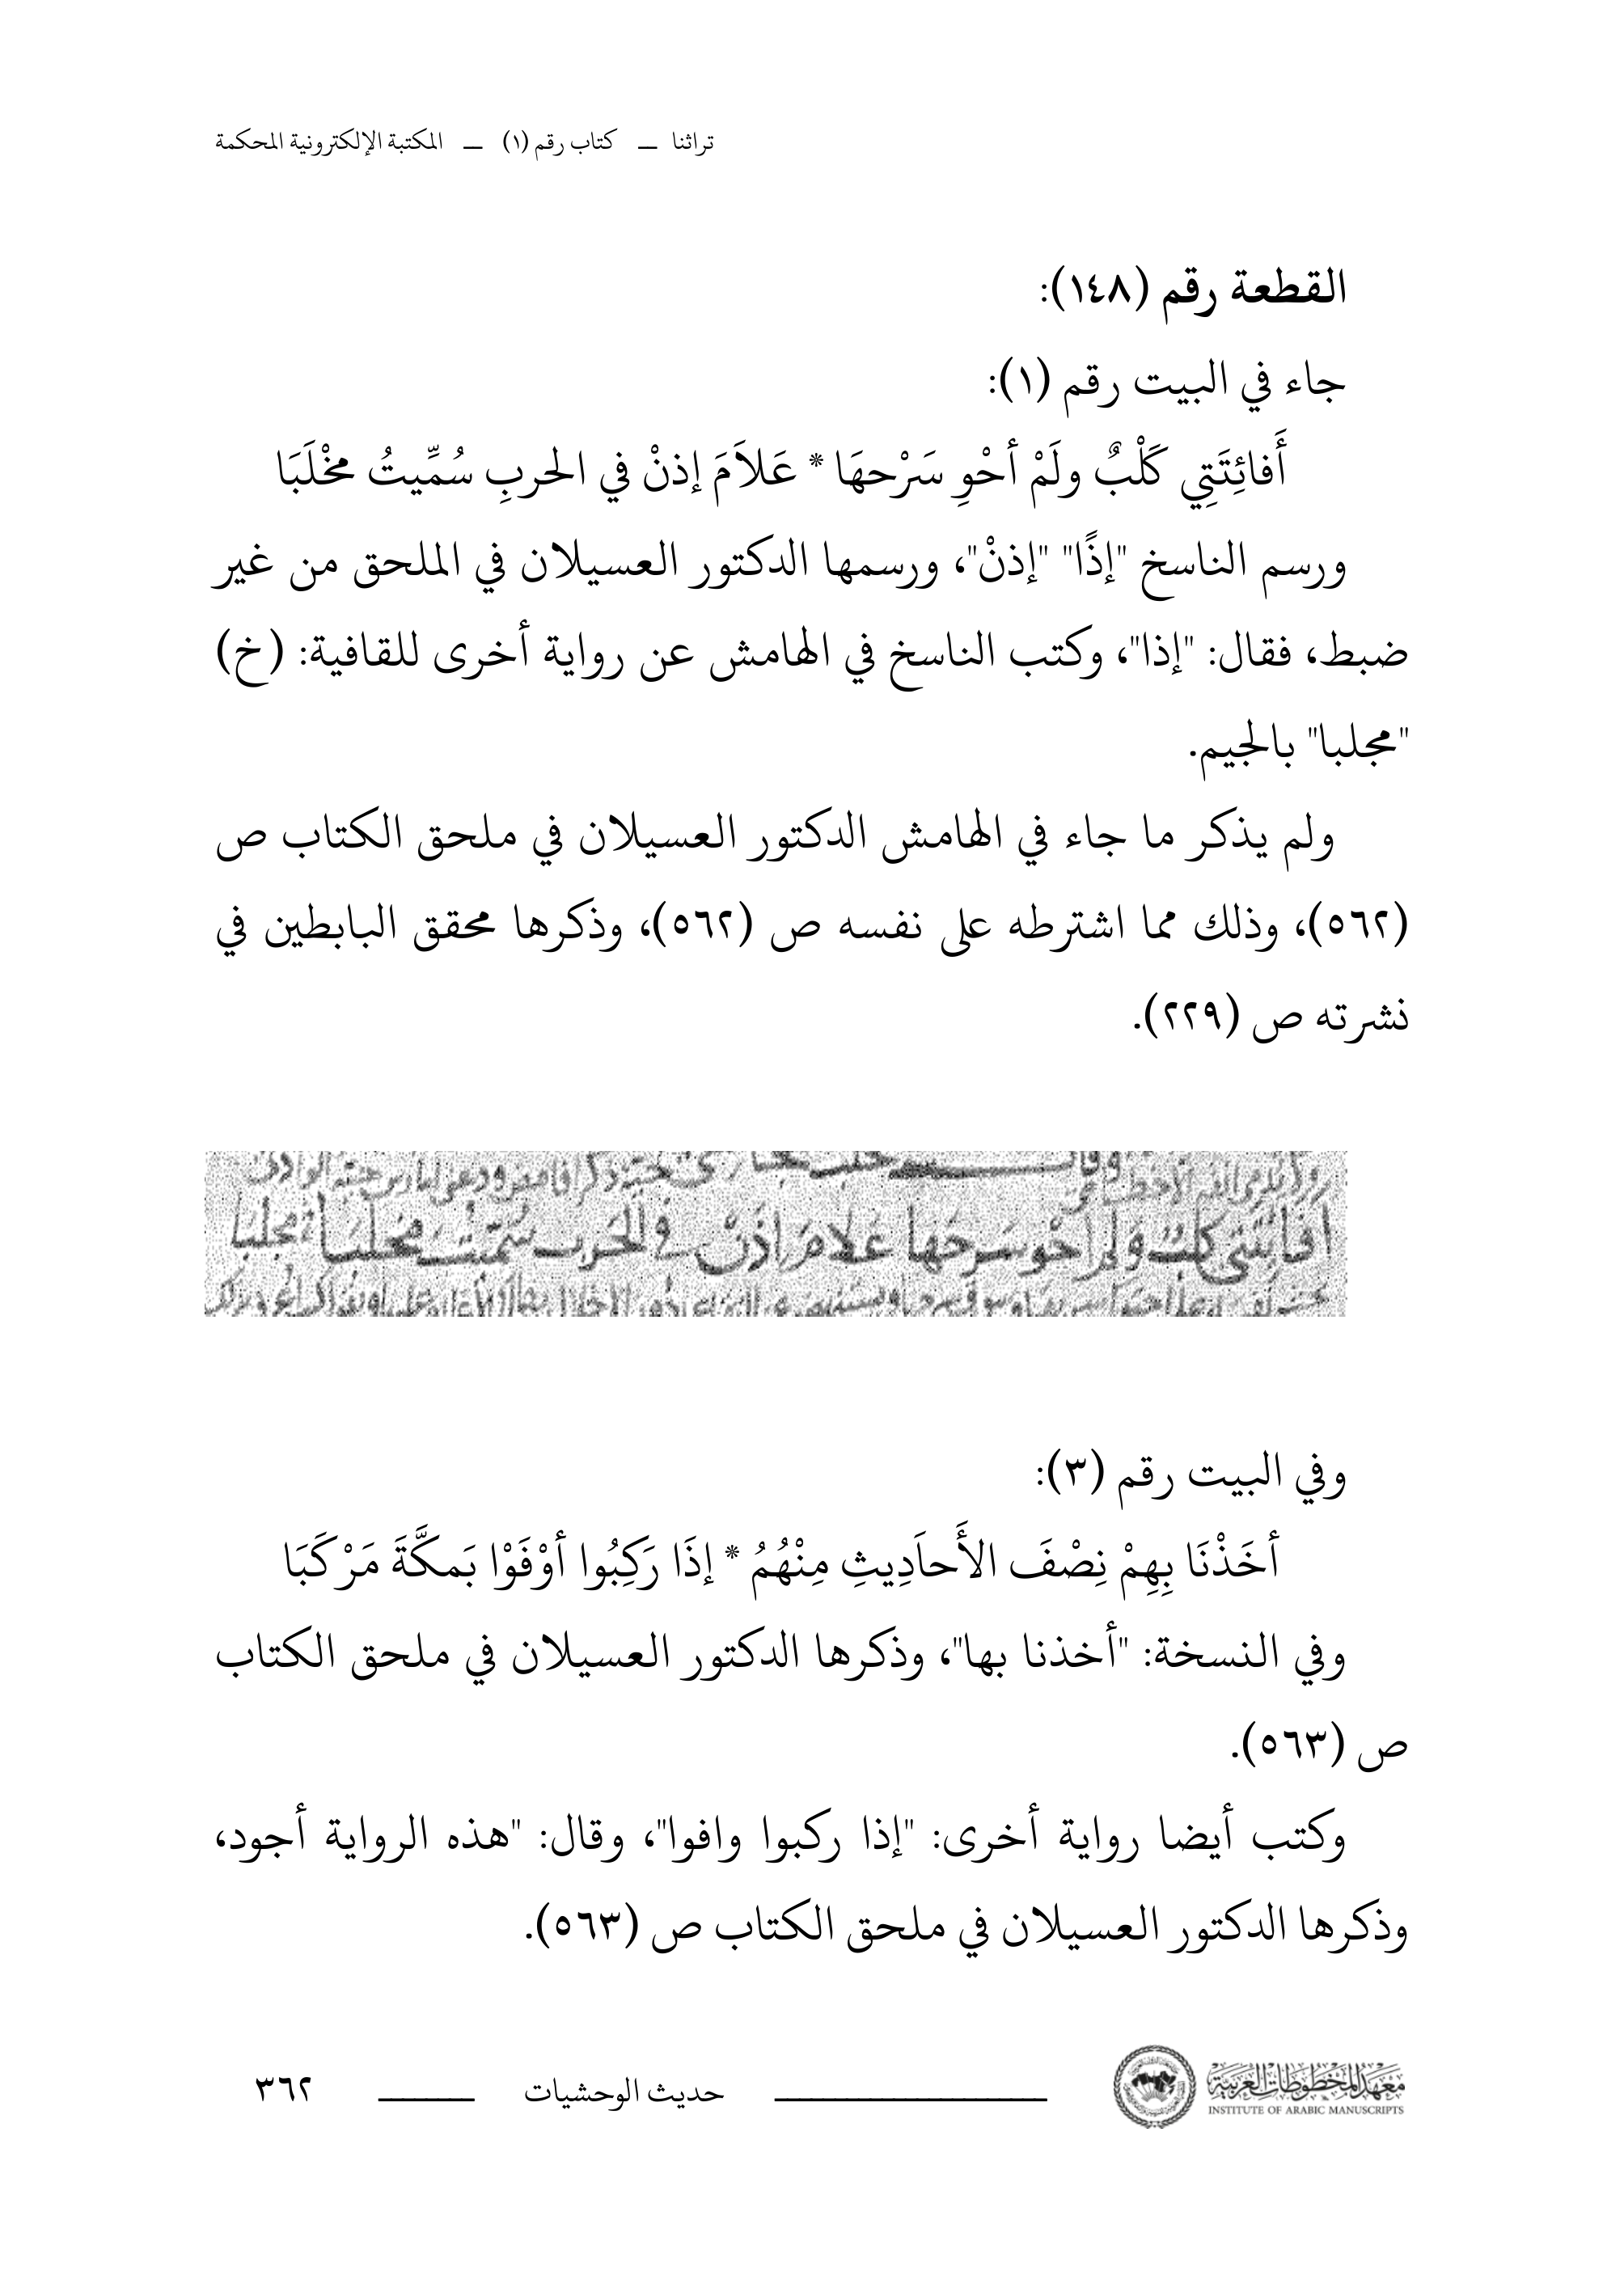 تراثنا — كتاب رقم (١) — المكتبة الإلكترونية المحكمة
القطعة رقم (١٤٨):
جاء في البيت رقم (١):
أَفائِتَتِي كَلْبٌ ولَمْ أحْوِ سَرْحهَا * عَلاَمَ إذنْ في الحربِ سُمِّيتُ مخْلَبَا
ورسم الناسخ "إذًا" "إذنْ"، ورسمها الدكتور العسيلان في الملحق من غير
ضبط، فقال: "إذا"، وكتب الناسخ في الهامش عن رواية أخرى للقافية: (خ)
"مجلبا" بالجيم.
ولم يذكر ما جاء في الهامش الدكتور العسيلان في ملحق الكتاب ص
(٥٦٢)، وذلك مما اشترطه على نفسه ص (٥٦٢)، وذكرها محقق البابطين في
نشرته ص (٢٢٩).
أفائتتي كلب ولم احو سرحها علام اذن في الحرب سميت مخلبا مجلبا
وفي البيت رقم (٣):
أخَذْنَا بِهِمْ نِصْفَ الأَحاَدِيثِ مِنْهُمُ * إذَا رَكِبُوا أوْفَوْا بَمكَّةَ مَرْكَبَا
وفي النسخة: "أخذنا بها"، وذكرها الدكتور العسيلان في ملحق الكتاب
ص (٥٦٣).
وكتب أيضا رواية أخرى: "إذا ركبوا وافوا"، وقال: "هذه الرواية أجود،
وذكرها الدكتور العسيلان في ملحق الكتاب ص (٥٦٣).
معهد المخطوطات العربية
INSTITUTE OF ARABIC MANUSCRIPTS
حديث الوحشيات
٣٦٢